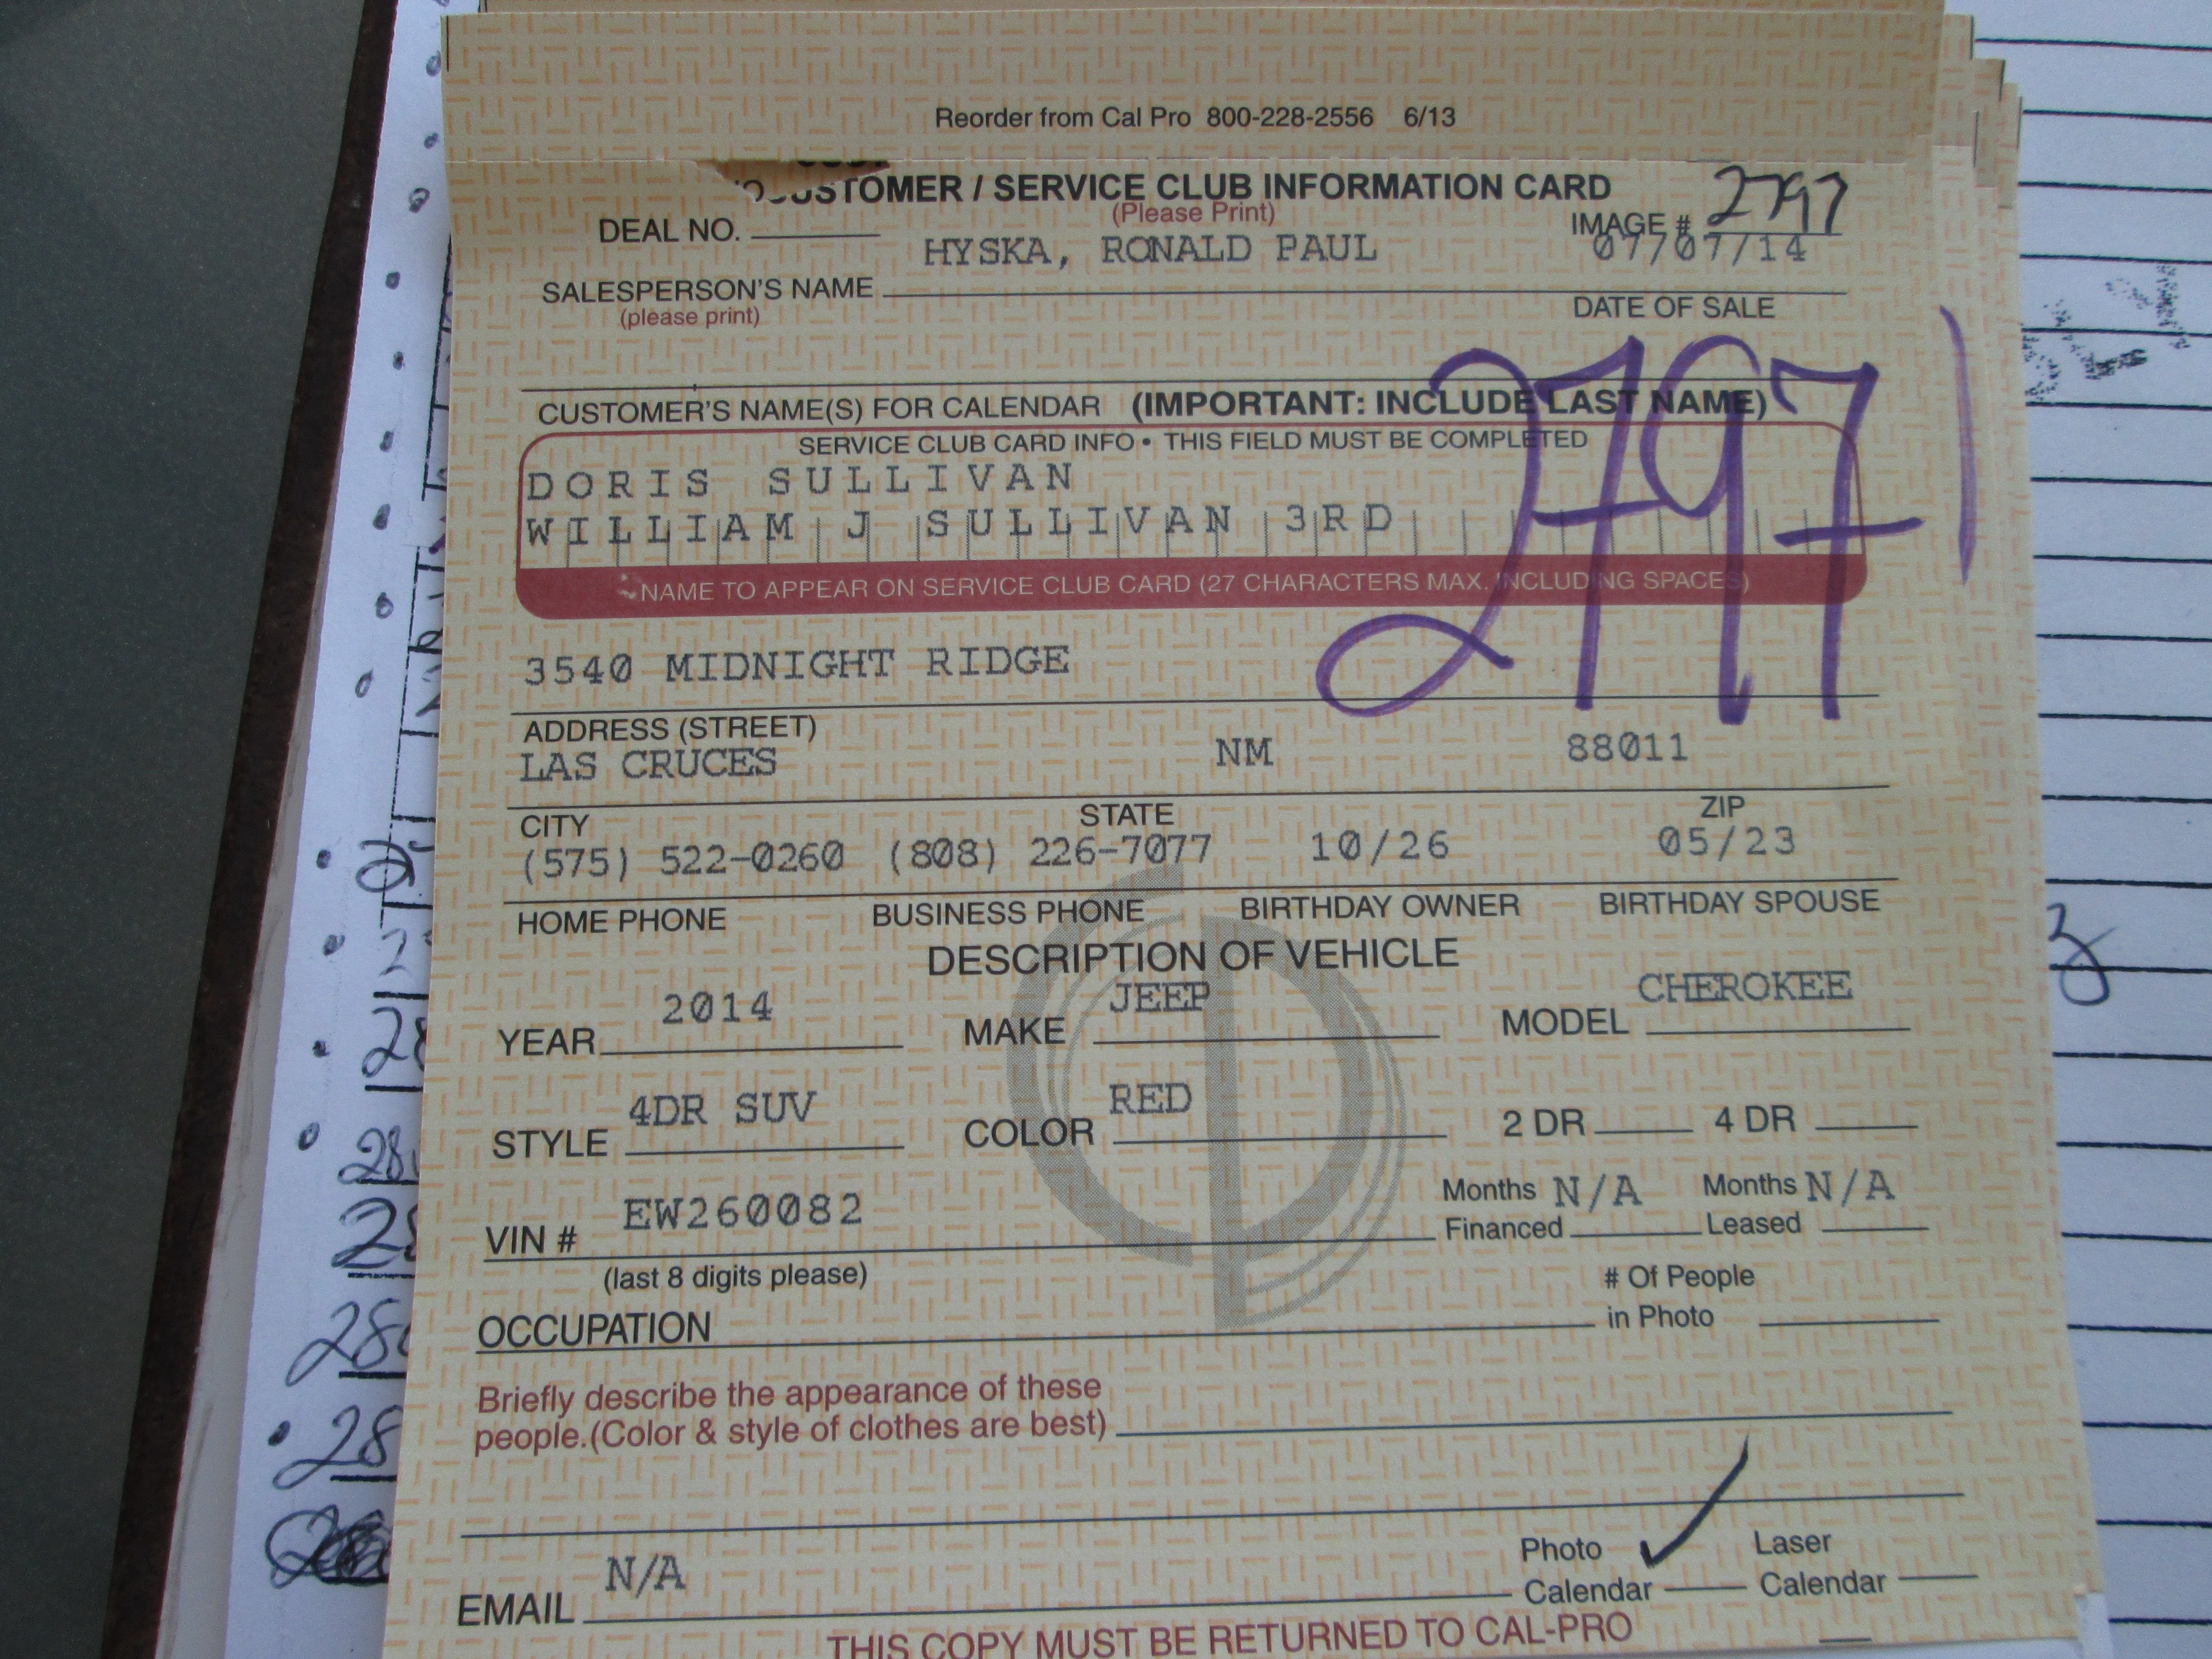 Reorder from Cal Pro 800-228-2556 6/13
CUSTOMER / SERVICE CLUB INFORMATION CARD
(Please Print)
IMAGE # 2797
DEAL NO.
HYSKA, RONALD PAUL 07/07/14
SALESPERSON'S NAME
(please print)
DATE OF SALE
2797
CUSTOMER'S NAME(S) FOR CALENDAR (IMPORTANT: INCLUDE LAST NAME)
SERVICE CLUB CARD INFO • THIS FIELD MUST BE COMPLETED
DORIS SULLIVAN
WILLIAM J SULLIVAN 3RD
NAME TO APPEAR ON SERVICE CLUB CARD (27 CHARACTERS MAX. INCLUDING SPACES)
3540 MIDNIGHT RIDGE
ADDRESS (STREET)
LAS CRUCES NM 88011
CITY STATE ZIP
(575) 522-0260 (808) 226-7077 10/26 05/23
HOME PHONE BUSINESS PHONE BIRTHDAY OWNER BIRTHDAY SPOUSE
DESCRIPTION OF VEHICLE
YEAR 2014 MAKE JEEP MODEL CHEROKEE
STYLE 4DR SUV COLOR RED 2 DR 4 DR
VIN # EW260082
Months Financed N/A Months Leased N/A
(last 8 digits please)
# Of People
in Photo
OCCUPATION
Briefly describe the appearance of these
people.(Color & style of clothes are best)
EMAIL N/A
Photo Calendar ✓ Laser Calendar
THIS COPY MUST BE RETURNED TO CAL-PRO